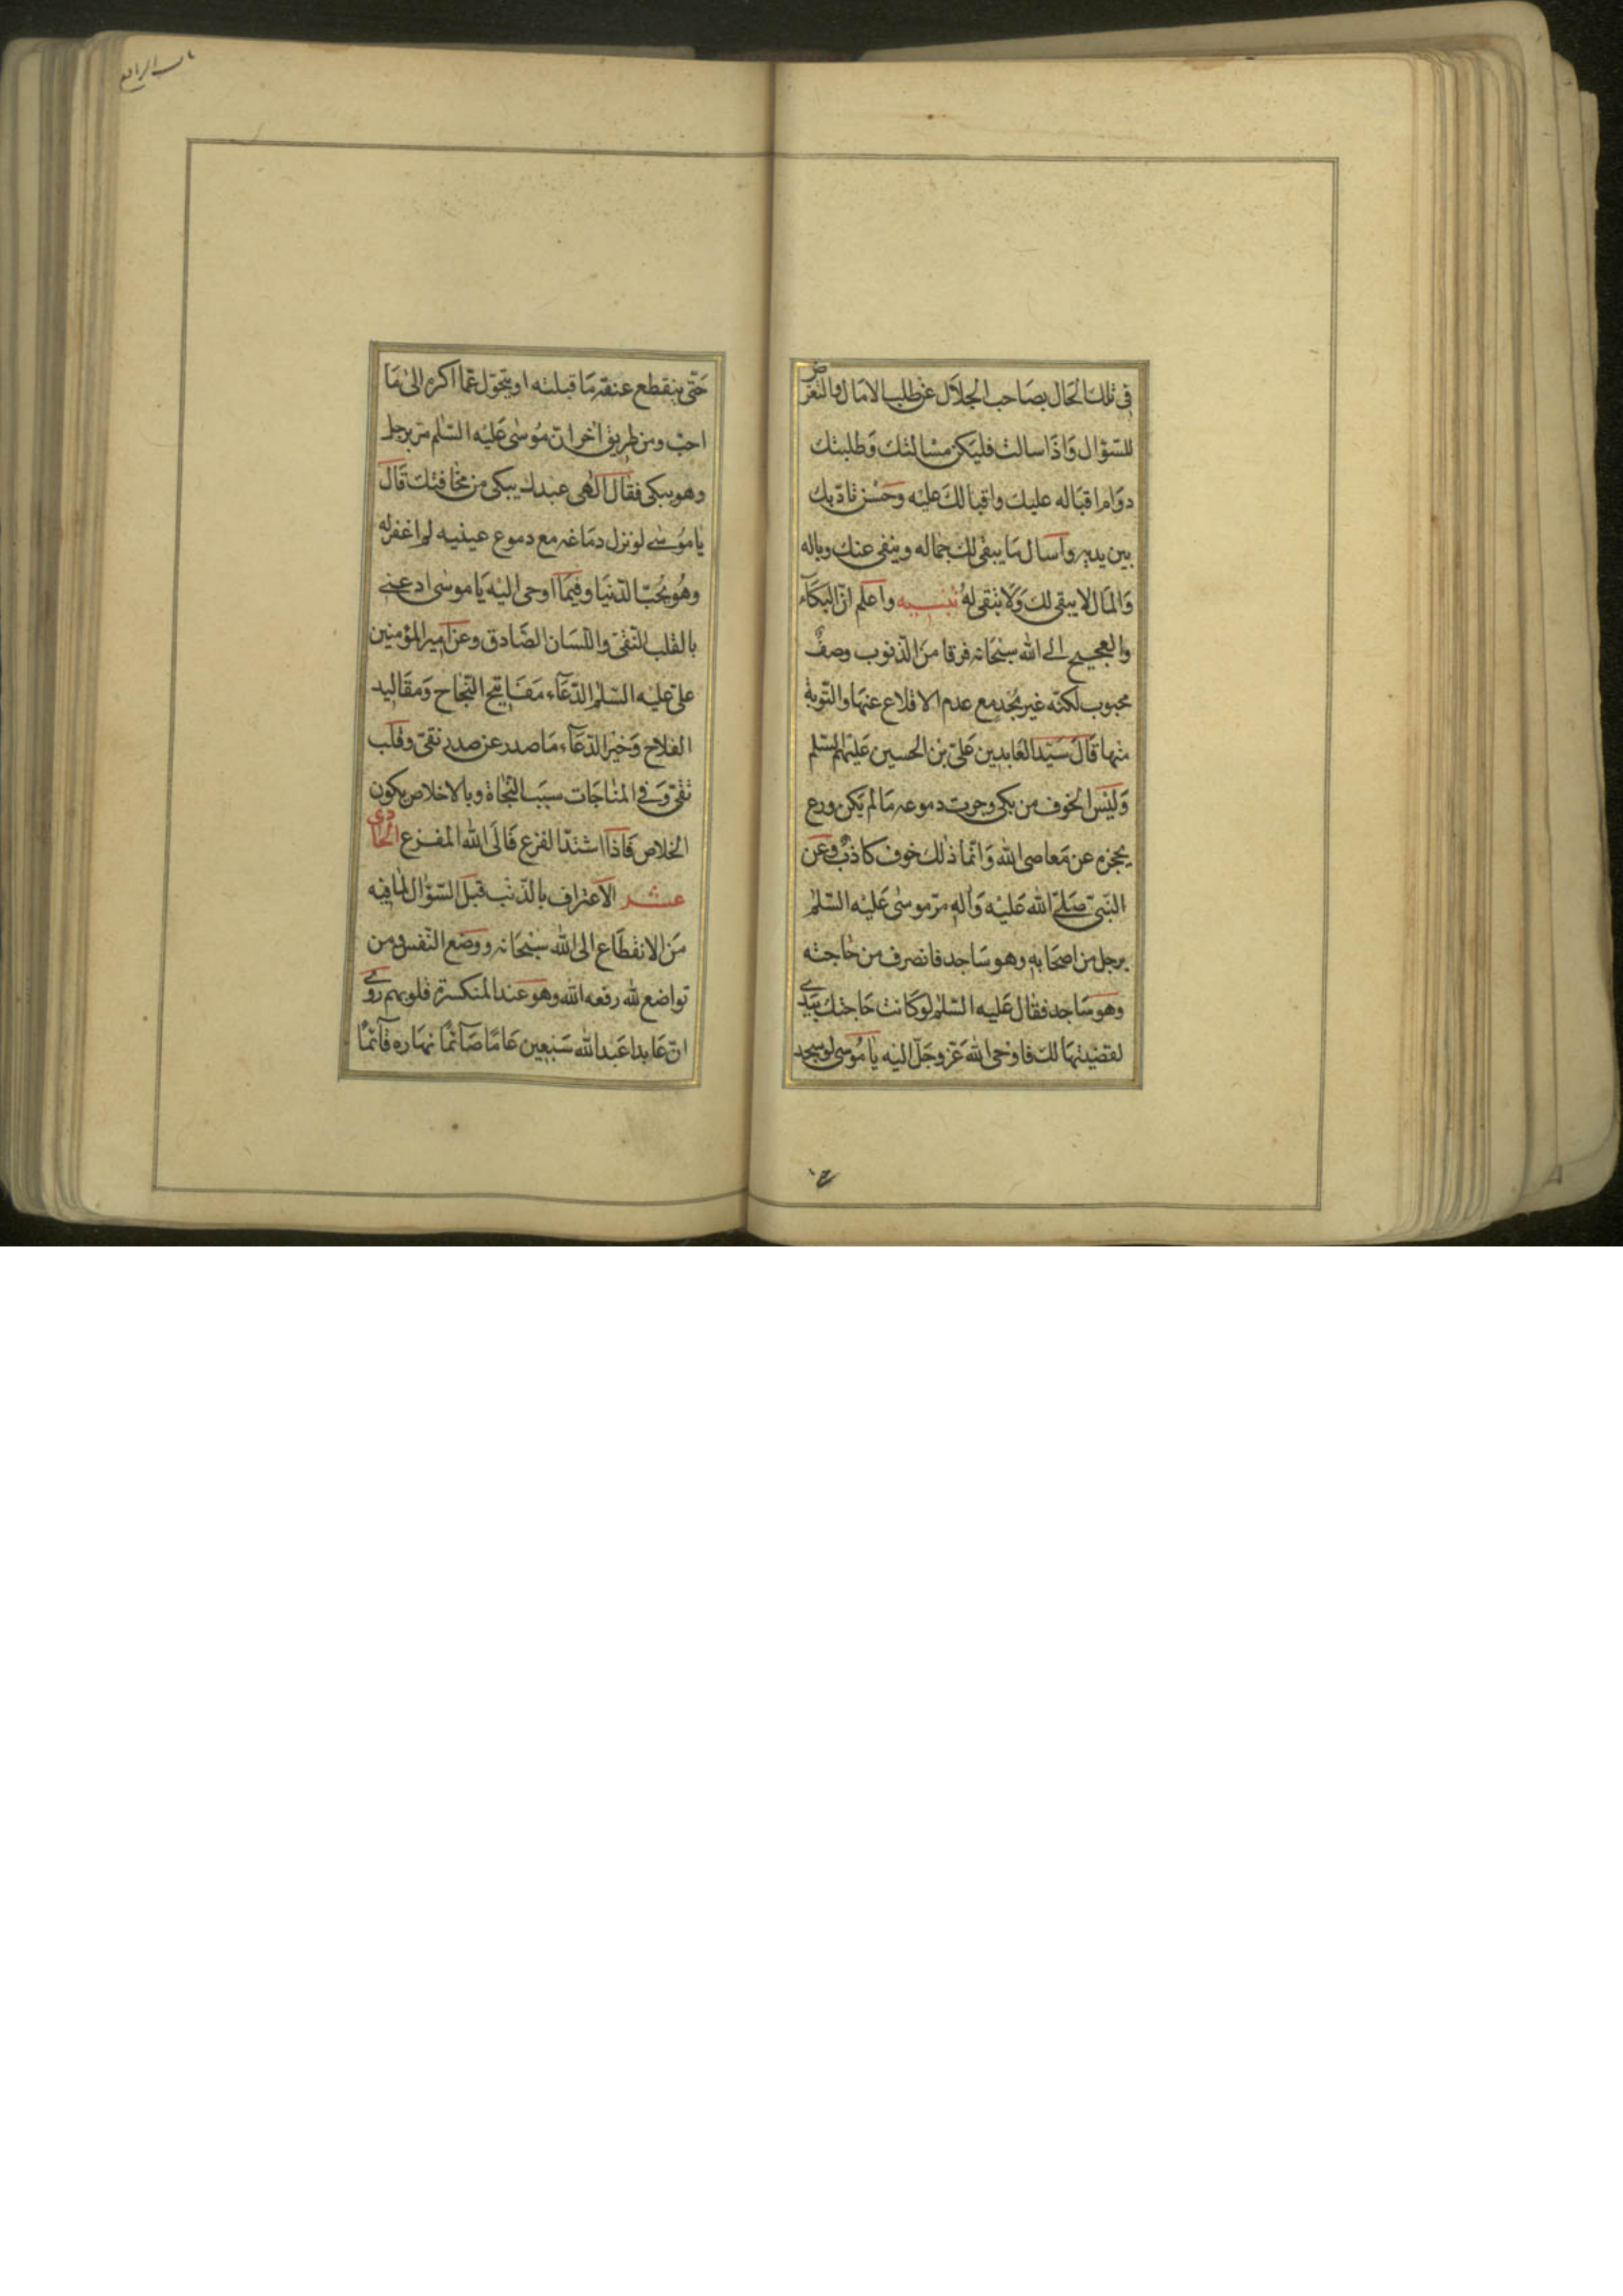 في تلك الحال بصاحب الجلال عن طلب الامال والتعرض
للسّؤال وَاذَا سالت فليكن مسْالتك وَطلبتك
دوَام اقبَاله عليك واقبالك عليْه وحسْن تادّبك
بين يديه واسال مَا يبقى لك جماله وينفى عنك وباله
وَالمَال لا يبقى لك وَلا تبقى لهُ تنبــيه واعلم انّ البكآء
والعجيج الى الله سبْحَانه فرقا منَ الذّنوب وصفٌ
محبوب لكنّه غير مُجْد مع عدم الاقلاع عنهَا والتّوبة
منها قَالَ سَيّد العَابدين عَلىّ بْن الحسين عَليْهما السّلم
وَليْسَ الخوف من بكى وجرت دموعه مَا لم يَكن ورع
يحجزه عن مَعاصى الله وَانّما ذٰلك خوف كاذبٌ وعَن
النّبىّ صَلّى الله عَليْه وَاٰله مرّ موسٰى عَليْه السّلٰم
برجل من اصحَابه وهو سَاجد فانصرف من حَاجته
وهو سَاجد فقال عَليه السّلٰم لو كانت حَاجتك بيَدى
لقضيْتهَا لك فاوْحى الله عَزّ وجَلّ اليْه يٰا مُوسى لو سجد
حَتّى ينقطع عنقه مَا قبلته او يتحَوّل عمّا اكره الىٰ مَا
احبّ ومن طريق اٰخر انّ مُوسٰى عَليْه السّلم مرّ برجل
وهو يبكى فقال الٰهى عبدك يبكى من مخافتك قَالَ
يٰا مُوسٰى لو نزل دمَاغه مع دموع عينيه لم اغفر له
وهُو يحُبّ الدّنيَا وفيمَا اوحى اليْه يَا موسٰى ادعنى
بالقلب النّقىّ واللّسَان الصَّادق وعن امير المؤمنين
علىّ عليْه السّلٰم الدّعَآء مَفَاتيح النّجَاح وَمقَاليد
الفلاح وَخيْر الدّعَآء مَا صدر عن صدر نقىّ وقلب
تقىّ وَفى المنٰاجَات سببَ النّجَاة وبالاخلاص يكون
الخلاص فَاذَا اشتدّ الفزع فَالَى الله المفـزع الحادى
عشـر الاعتراف بالذّنب قبل السّؤال لمَا فيْه
مَن الانقطَاع الى الله سبْحَانه ووضع النّفس ومن
تواضع لله رفعه الله وهو عند المنكسرة قلوبهم روى
انّ عَابدا عَبد الله سَبْعين عَامًا صَآئمًا نهَاره قآئمًا